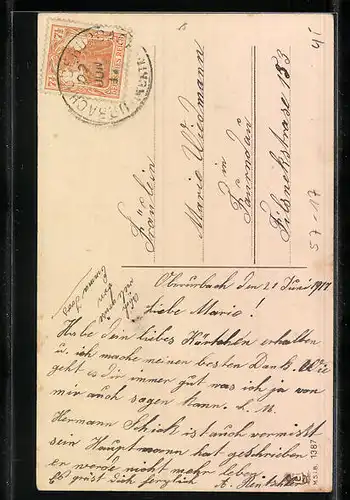 Fräulein
Marie Wiedmann
in
Filsneckstrase 153
Oberurbach den 21 Juni 1917
Liebe Marie!
Habe dein liebes Kärtchen erhalten
u. ich mache meinen besten Dank. Wie
geht es dir immer gut was ich ja von
mir auch sagen kann. L. M.
Hermann Schick ist auch vermisst
sein Hauptmann hat geschrieben
er werde nicht mehr leben
Es grüst dich herzlich A.
57-17
H.S.i.B. 1387
7½ 7½